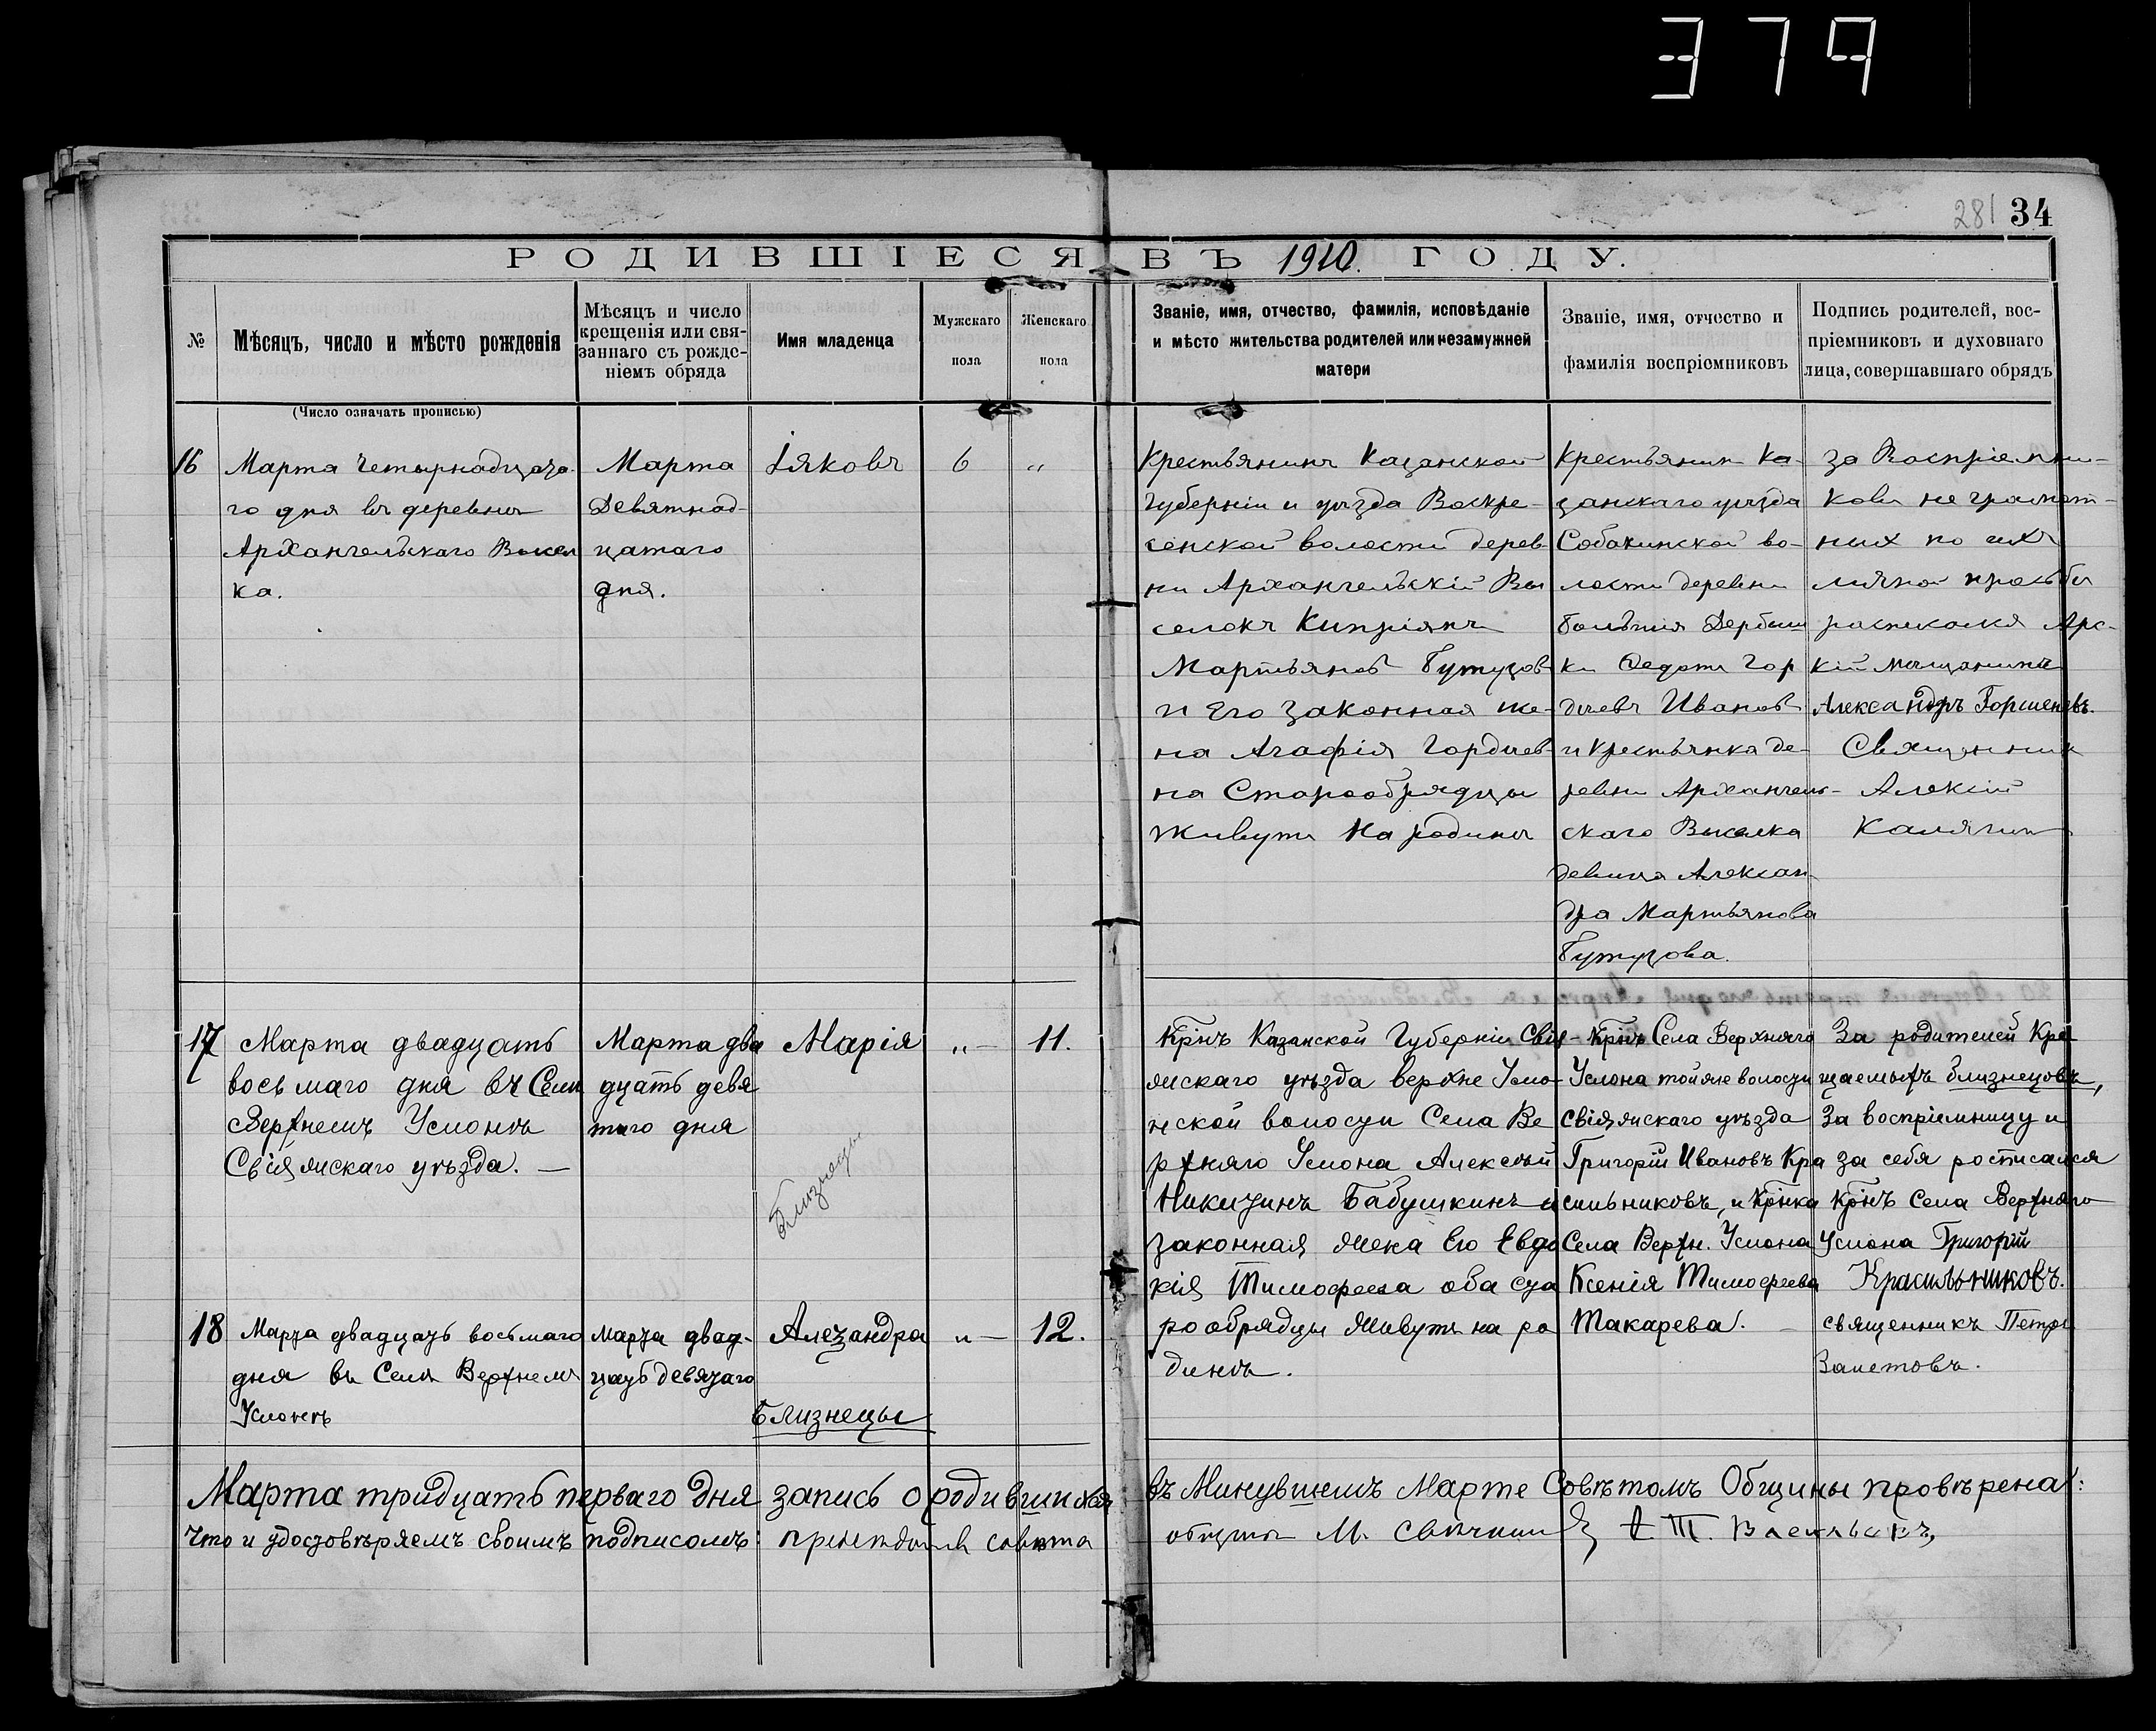 379
281 34
РОДИВШІЕСЯ ВЪ 1910. ГОДУ.
№
Мѣсяцъ, число и мѣсто рожденія
(Число означать прописью)
Мѣсяцъ и число
крещенія или свя-
заннаго съ рожде-
ніемъ обряда
Имя младенца
Мужскаго
пола
Женскаго
пола
Званіе, имя, отчество, фамилія, исповѣданіе
и мѣсто жительства родителей или незамужней
матери
Званіе, имя, отчество и
фамилія воспріемниковъ
Подпись родителей, вос-
пріемниковъ и духовнаго
лица, совершавшаго обрядъ
16
Марта четырнадцата-
го дня въ деревнѣ
Архангельскаго Высел
ка.
Марта
Девятнад-
цатаго
дня.
Іяковъ
6
"
Крестьянинъ Казанской
Губерніи и уѣзда Воскре-
сенской волости дерев-
ни Архангельскій Вы
селокъ Кипріянъ
Мартьяновъ Бутузовъ
и Его законная же-
на Агафія Гордѣев-
на Старообрядцы
живутъ на родинѣ
Крестьянин Ка-
занскаго уѣзда
Собакинской во-
лости деревни
большія Дербыш
ки Федотъ Гор
дѣевъ Ивановъ
и крестьянка де-
ревни Архангель-
скаго Выселка
девица Алексан-
дра Мартьянова
Бутузова.
за Воспріемни-
ковъ не грамот-
ных по ихъ
личной просьбѣ
росписался Арс-
кій мѣщанинъ
Александръ Горшеневъ.
Священник
Алексій
Калягин
17
Марта двадцать
восьмаго дня въ Селѣ
Верхнемъ Услонѣ
Свіяжскаго уѣзда. —
Марта два
дцать девя
таго дня
Марія
"—
11.
Близнецы
Кр͞нъ Казанской Губерніи Свія-
жскаго уѣзда верхне Усло-
нской волости Села Ве
рхняго Услона Алексѣй
Никитинъ Бабушкинъ и
законная жена Его Евдо
кія Тимофеева оба ста
рообрядцы живутъ на ро
динѣ.
Кр͞нъ Села Верхняго
Услона той же волости
Свіяжскаго уѣзда
Григорій Ивановъ Кра
сильниковъ, и Кр͞нка
Села Верхн. Услона
Ксенія Тимофеева
Макарева.
За родителей Кре
щаемыхъ близнецовъ,
За воспріемницу и
за себя росписался
Кр͞нъ Села Верхняго
Услона Григорій
Красильниковъ.
священникъ Петръ
Залетовъ.
18
Марта двадцать восьмаго
дня въ Селѣ Верхнемъ
Услонѣ
марта двад-
цать девятаго
Алезандра
"—
12.
Близнецы
Марта тридцать перваго дня запись о родившихся въ Минувшемъ Марте Совѣтомъ Общины провѣрена:
Что и удостовѣряемъ своимъ подписомъ: совѣта
общины М. П. Васильевъ